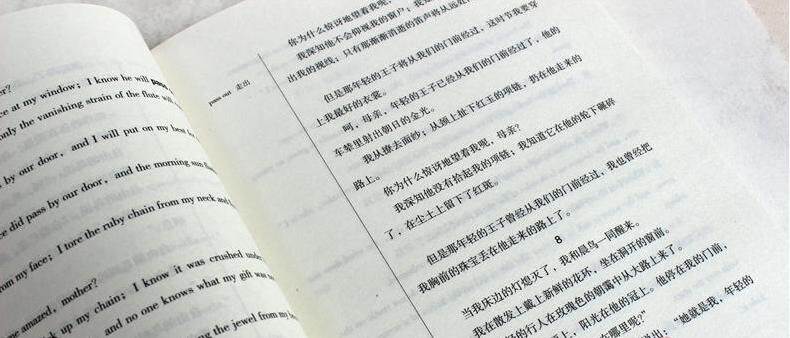 r?
ce at my window; I know he will pass
only the vanishing strain of the flute will
by our door, and I will put on my best
e did pass by our door, and the morning sun
om my face; I tore the ruby chain from my neck and
ne amazed, mother?
k up my chain; I know it was crushed under
and no one knows what my gift was
ng the jewel from my
pass out 走出
你为什么惊讶地望着我呢,
我深知他不会仰视我的窗户;我知
出我的视线;只有那渐渐消逝的笛声将从远处
这时节我要穿
但是那年轻的王子将从我们的门前经过,
上我最好的衣裳。
呵,母亲,年轻的王子已经从我们的门前经过了,他的
车辇里射出朝日的金光。
我从撩去面纱;从颈上扯下红玉的项链,扔在他走来的
路上。
你为什么惊讶地望着我呢,母亲?
我深知他没有拾起我的项链;我知道它在他的轮下碾碎
了,在尘土上留下了红斑。
但是那年轻的王子曾经从我们的门前经过,我也曾经把
我胸前的珠宝丢在他走来的路上了。
8
当我床边的灯熄灭了,我和晨鸟一同醒来。
我在散发上戴上新鲜的花环,坐在洞开的窗前。
轻的行人在玫瑰色的朝霭中从大路上来了。
上,阳光在他的冠上。他停在我的门前,
在哪里呢?”
“她就是我,年轻的